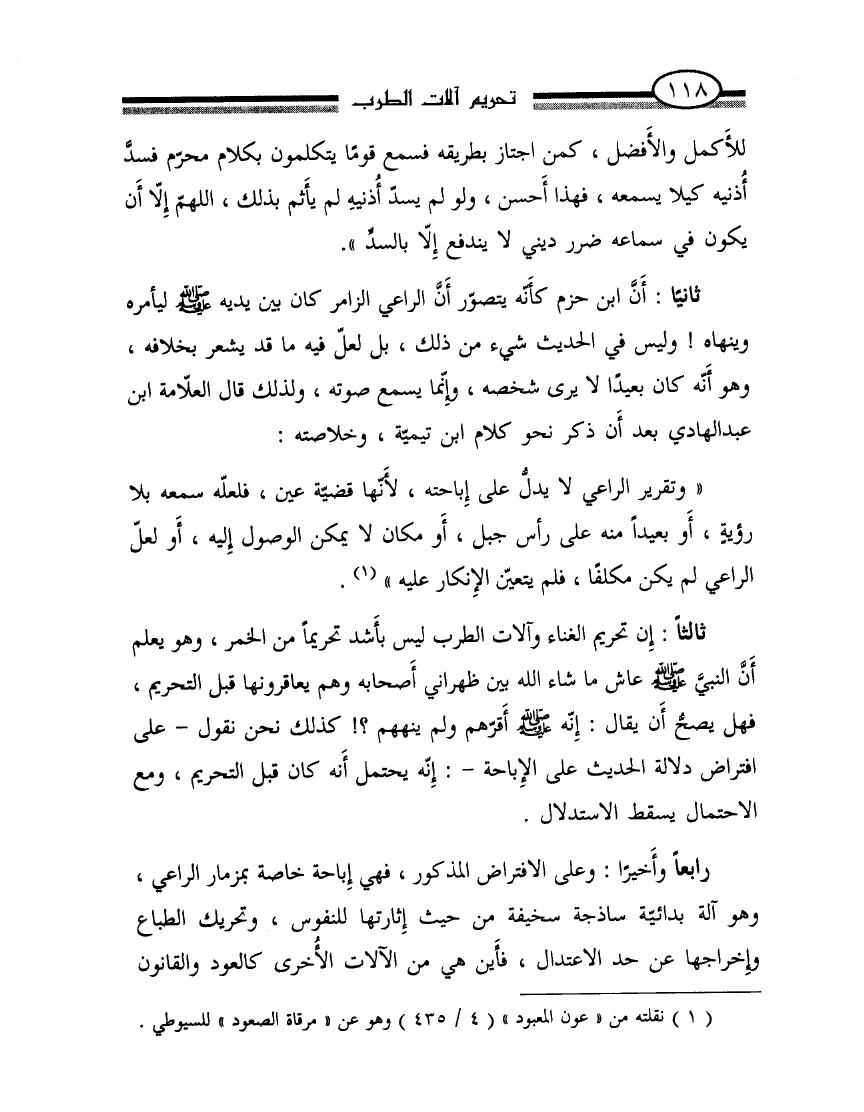 ١١٨
تحريم آلات الطرب
للأكمل والأَفضل ، كمن اجتاز بطريقه فسمع قومًا يتكلمون بكلام محرّم فسدَّ
أُذنيه كيلا يسمعه ، فهذا أَحسن ، ولو لم يسدّ أُذنيهِ لم يأثم بذلك ، اللهمّ إِلّا أَن
يكون في سماعه ضرر ديني لا يندفع إِلّا بالسدِّ ».
ثانيًا : أَنَّ ابن حزم كأَنّه يتصوّر أَنَّ الراعي الزامر كان بين يديه ﷺ ليأمره
وينهاه ! وليس في الحديث شيء من ذلك ، بل لعلّ فيه ما قد يشعر بخلافه ،
وهو أَنّه كان بعيدًا لا يرى شخصه ، وإِنّما يسمع صوته ، ولذلك قال العلّامة ابن
عبدالهادي بعد أَن ذكر نحو كلام ابن تيميّة ، وخلاصته :
« وتقرير الراعي لا يدلُّ على إِباحته ، لأَنّها قضيّة عين ، فلعلّه سمعه بلا
رؤيةٍ ، أَو بعيداً منه على رأس جبل ، أَو مكان لا يمكن الوصول إِليه ، أَو لعلّ
الراعي لم يكن مكلفًا ، فلم يتعيّن الإِنكار عليه » (١) .
ثالثاً : إِن تحريم الغناء وآلات الطرب ليس بأَشد تحريماً من الخمر ، وهو يعلم
أَنَّ النبيَّ ﷺ عاش ما شاء الله بين ظهراني أَصحابه وهم يعاقرونها قبل التحريم ،
فهل يصحُّ أَن يقال : إِنّه ﷺ أَقرّهم ولم ينههم ؟! كذلك نحن نقول – على
افتراض دلالة الحديث على الإِباحة – : إِنّه يحتمل أنه كان قبل التحريم ، ومع
الاحتمال يسقط الاستدلال .
رابعاً وأَخيرًا : وعلى الافتراض المذكور ، فهي إِباحة خاصة بمزمار الراعي ،
وهو آلة بدائيّة ساذجة سخيفة من حيث إِثارتها للنفوس ، وتحريك الطباع
وإِخراجها عن حد الاعتدال ، فأَين هي من الآلات الأُخرى كالعود والقانون
( ١ ) نقلته من « عون المعبود » ( ٤ / ٤٣٥ ) وهو عن « مرقاة الصعود » للسيوطي .